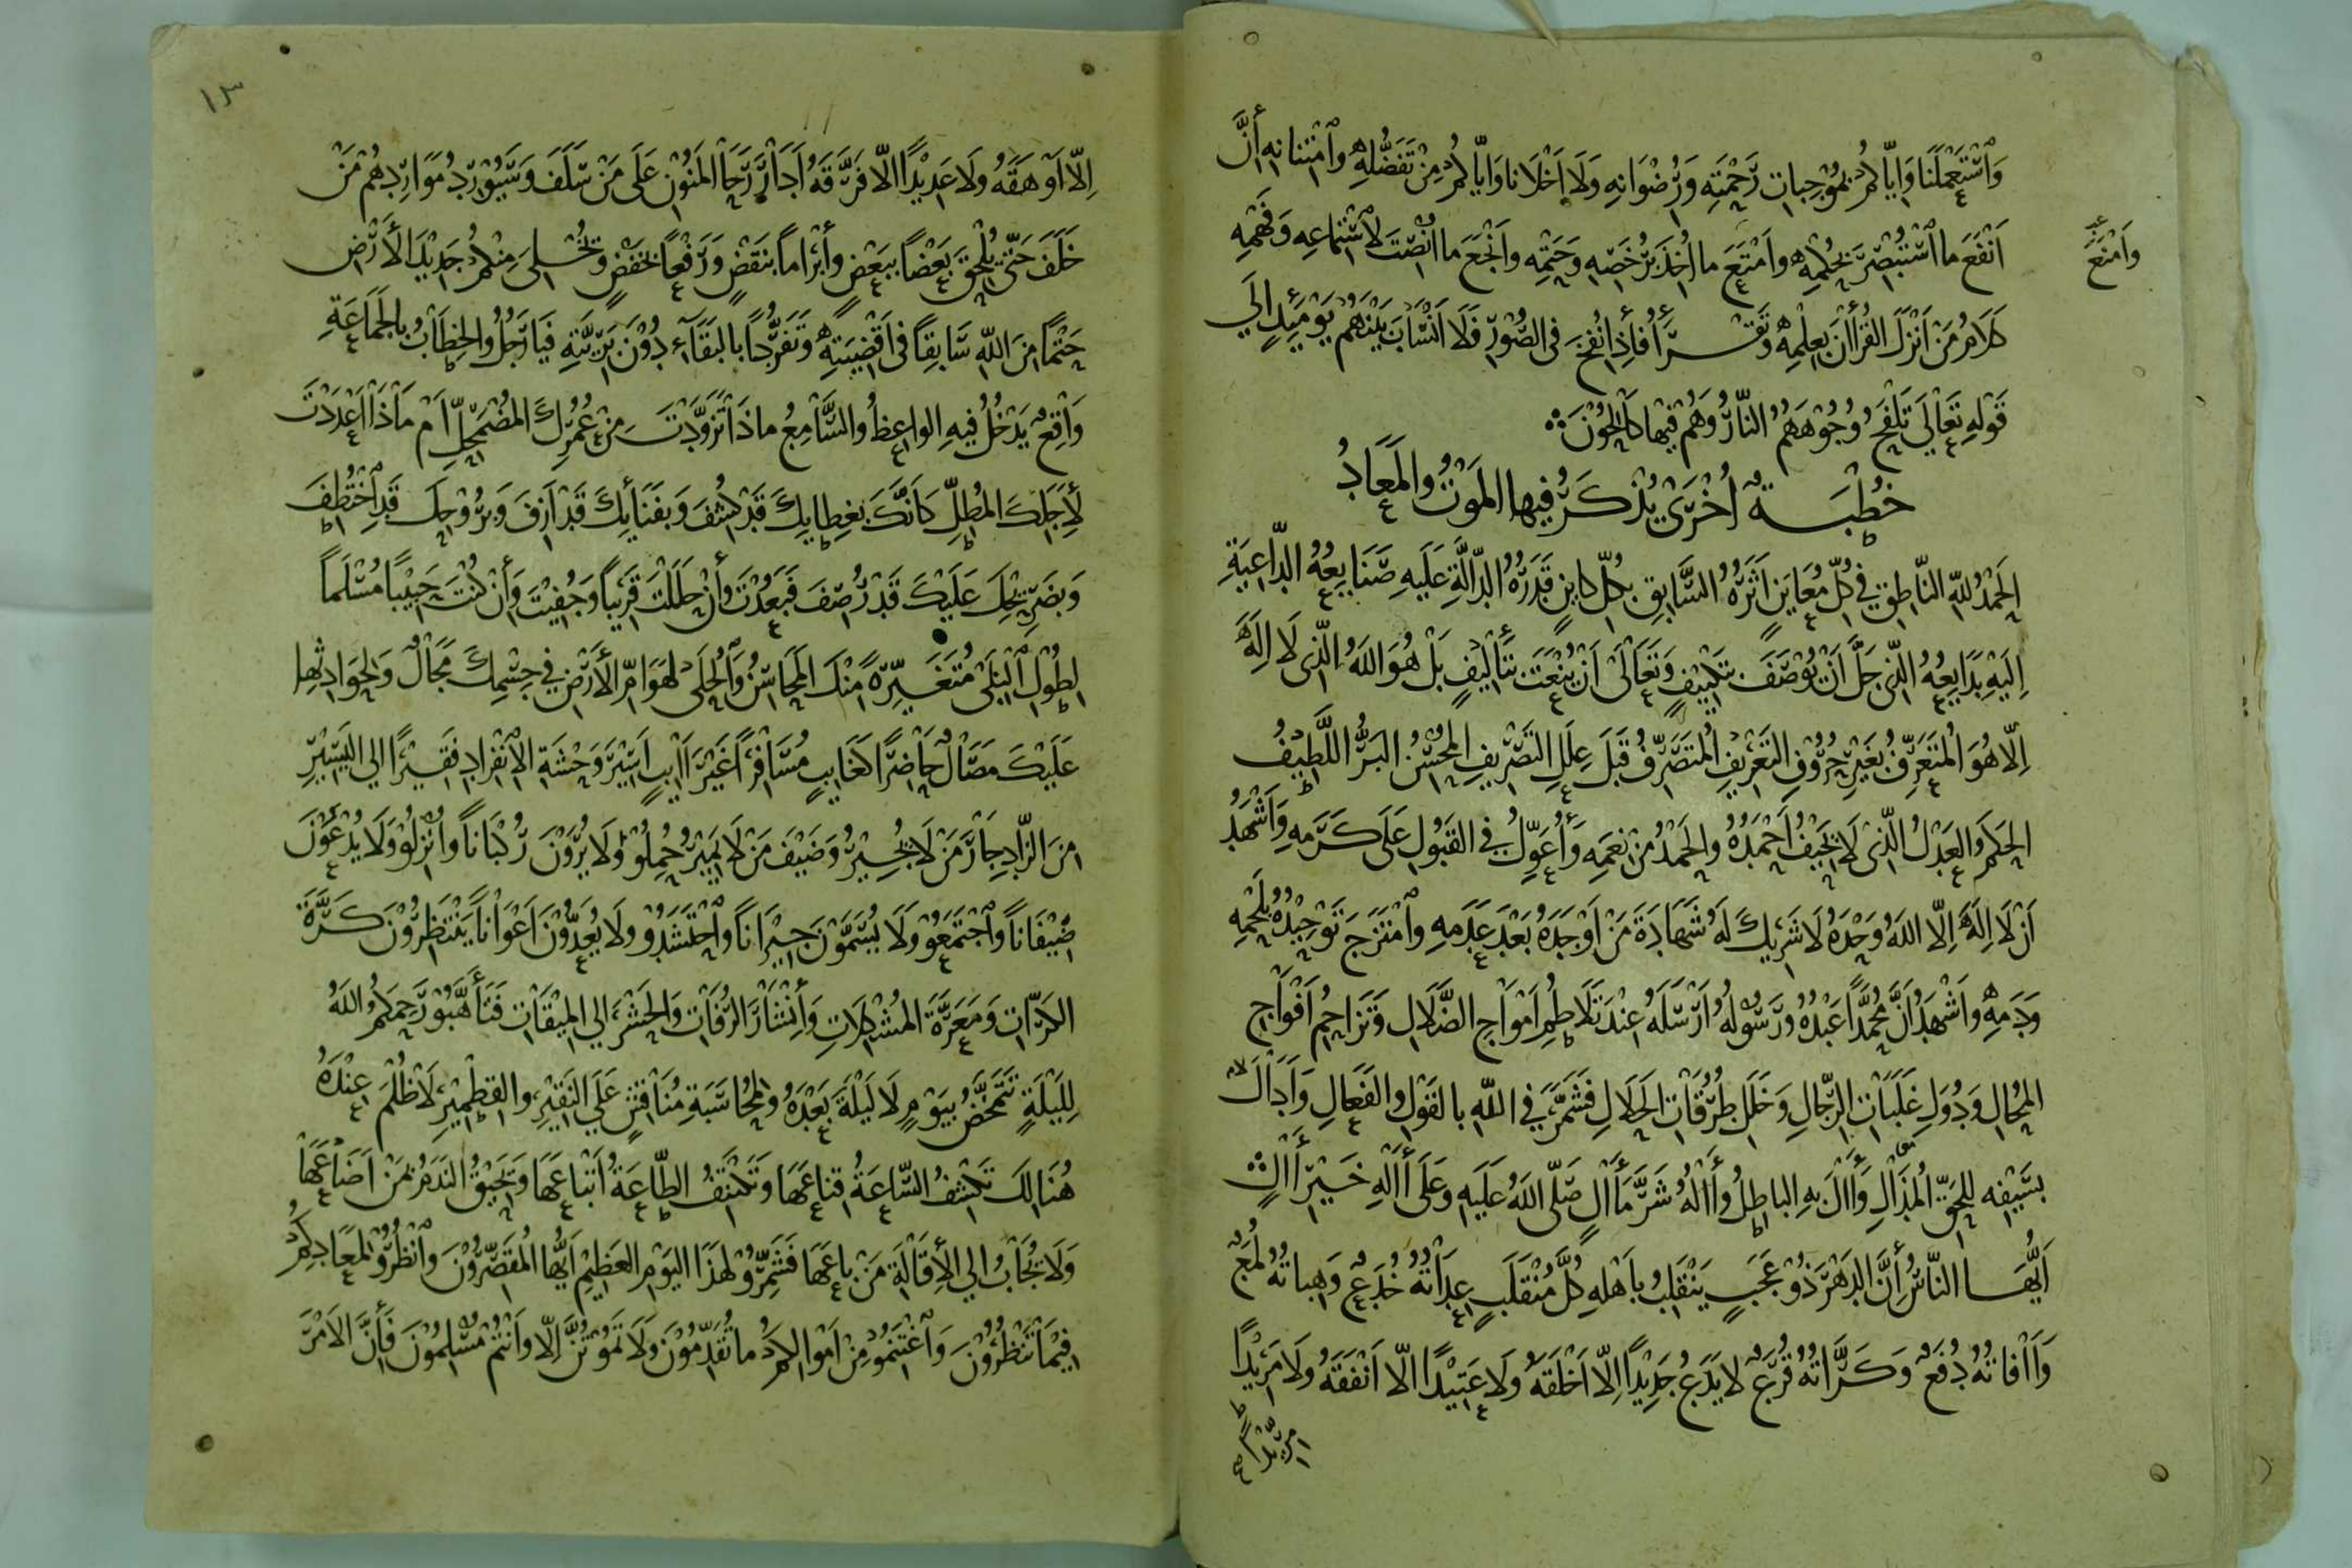 وَاسْتَعْمَلَنَا وَاِيَّاكُمْ بِمُوْجِبَاتِ رَحْمَتِهِ وَرُضْوَانِهِ وَلَا اَخْلَانَا وَاِيَّاكُمْ مِنْ تَفَضُّلِهِ وَامْتِنَانِهِ أَنَّ
اَنْفَعَ مَا اسْتُبْصِرَ بِحُكْمِهِ وَاَمْتَعَ مَا اُخِذَ بِرُخَصِهِ وَحَتْمِهِ وَاَنْجَعَ مَا اُنْصِتَ لِاسْتِمَاعِهِ وَفَهْمِهِ
وَاَمْنَعَ
كَلَامُ مَنْ اَنْزَلَ الْقُرْأٰنَ بِعِلْمِهِ وَتَقْرَأُ فَاِذَا نُفِخَ فِى الصُّوْرِ فَلَا اَنْسَابَ بَيْنَهُمْ يَوْمَئِذٍ اِلَى
قَوْلِهِ تَعَالَى تَلْفَحُ وُجُوْهَهُمُ النَّارُ وَهُمْ فِيْهَا كَالِحُوْنَ
خُطْبَةٌ اُخْرَى يُذْكَرُ فِيهَا الْمَوْتُ وَالْمَعَادُ
اَلْحَمْدُ لِلّٰهِ النَّاطِقِ فِي كُلِّ مُعَايَنٍ اَثَرُهُ السَّابِقِ بِكُلِّ كَايِنٍ قَدَرُهُ الدَّالَّةِ عَلَيهِ صَنَايِعُهُ الدَّاعِيَةِ
اِلَيْهِ بَدَايِعُهُ الَّذِى جَلَّ اَنْ يُوْصَفَ بِتَكْيِيفٍ وَتَعَالَى اَنْ يُنْعَتَ بِتَأْلِيْفٍ بَلْ هُوَ اللّٰهُ الَّذِى لَا اِلٰهَ
اِلَّا هُوَ الْمُتَعَرِّفُ بِغَيْرِ حُرُوْفِ التَّعْرِيْفِ الْمُتَصَرِّفُ قَبْلَ عِلَلِ التَّصْرِيفِ الْمُحْسِنُ الْبَرُّ اللَّطِيْفُ
الْحَكَمُ وَالْعَدْلُ الَّذِى لَا يَحِيْفُ اَحْمَدُهُ وَالْحَمْدُ مِنْ نِعَمِهِ وَأُعَوِّلُ فِى الْقَبُولِ عَلَى كَرَمِهِ وَاَشْهَدُ
اَنْ لَا اِلٰهَ اِلَّا اللّٰهُ وَحْدَهُ لَا شَرِيْكَ لَهُ شَهَادَةَ مَنْ اَوْجَدَهُ بَعْدَ عَدَمِهِ وَامْتَزَجَ تَوْحِيْدُهُ بِلَحْمِهِ
وَدَمِهِ وَاَشْهَدُ اَنَّ مُحَمَّدًا عَبْدُهُ وَرَسُوْلُهُ اَرْسَلَهُ عِنْدَ تَلَاطُمِ اَمْوَاجِ الضَّلَالِ وَتَزَاحُمِ اَفْوَاجِ
الْمُحَالِ وَدُوَلِ غَلَبَاتِ الرِّجَالِ وَخَلَلِ طُرُقَاتِ الْحَلَالِ فَشَمَّرَ فِي اللّٰهِ بِالْقَوْلِ وَالْفَعَالِ وَاَدَالَ
بِسَيْفِهِ لِلْحَقِّ الْمُذَالِ وَأَالَ بِهِ الْبَاطِلُ وَأٰلُهُ شَرَّ مَأٰلٍ صَلَّى اللّٰهُ عَلَيهِ وَعَلَى أٰلِهِ خَيْرِ أٰلٍ
اَيُّهَا النَّاسُ إِنَّ الدَّهْرَ ذُوْ عَجَبٍ يَنْقَلِبُ بِاَهْلِهِ كُلَّ مُنْقَلَبٍ عِدَاتُهُ خُدَعٌ وَهِبَاتُهُ لُمَعٌ
وَأٰفَاتُهُ دُفَعٌ وَكَرَّاتُهُ قُرَعٌ لَا يَدَعُ جَدِيْدًا اِلَّا اَخْلَقَهُ وَلَا عَتِيْدًا اِلَّا اَنْفَقَهُ وَلَا مَرِيْدًا
١٣
اِلَّا اَوْهَقَهُ وَلَا عَدِيْدًا اِلَّا فَرَّقَهُ اَدَارَ رَحَا الْمَنُوْنِ عَلَى مَنْ سَلَفَ وَسَيُوْرِدُ مَوَارِدَهُمْ مَنْ
خَلَفَ حَتَّى يُلْحِقَ بَعْضًا بِبَعْضٍ وَأَبْرَامًا بِنَقْضٍ وَرَفْعًا بِخَفْضٍ وَتَخْلٰى مِنْكُمْ جَدِيْدَ الْأَرْضِ
حَتْمًا مِنَ اللّٰهِ سَابِقًا فِى اَقْضِيَتِهِ وَتَفَرُّدًا بِالْبَقَاءِ دُوْنَ بَرِيَّتِهِ فَيَا رَجُلُ وَالْخِطَابُ بِالْجَمَاعَةِ
وَاقِعٌ يَدْخُلُ فِيهِ الْوَاعِظُ وَالسَّامِعُ مَاذَا تَزَوَّدْتَ مِنْ عُمُرِكَ الْمُضْمَحِلِّ اَمْ مَاذَا اَعْدَدْتَ
لِأَجَلِكَ الْمُطِلِّ كَاَنَّكَ بِغِطَايِكَ قَدْ كُشِفَ وَبِفَنَايِكَ قَدْ اَزِفَ وَبِرُوْحِكَ قَدِ اخْتُطِفَ
وَبِضَرِيْحِكَ عَلَيْكَ قَدْ رُصِفَ فَبَعُدْتَ وَأِنْ حَلَلْتَ قَرِيبًا وَجُفِيْتَ وَأِنْ كُنْتَ حَبِيْبًا مُسْلَمًا
لِطُوْلِ الْبِلٰى مُتَغَيِّرَةً مِنْكَ الْمَحَاسِنُ وَالْحُلٰى لِهَوَامِّ الْأَرْضِ فِي جِسْمِكَ مَجَالٌ وَلِحَوَادِثِهَا
عَلَيْكَ مَصَالٌ حَاضِرًا كَغَايِبٍ مُسَافِرًا غَيْرَ اٰيِبٍ اَسِيْرَ وَحْشَةِ الْاِنْفِرَادِ فَقِيْرًا اِلَى الْيَسِيْرِ
مِنَ الزَّادِ جَارَ مَنْ لَا يُجِيْرُ وَضَيْفَ مَنْ لَا يَمِيْرُ حُمِلُوْا وَلَا يُرَوْنَ رُكْبَانًا وَاُنْزِلُوْا وَلَا يُدْعَوْنَ
ضِيْفَانًا وَاجْتَمَعُوْا وَلَا يُسَمَّوْنَ جِيْرَانًا وَاحْتَشَدُوْا وَلَا يُعَدُّوْنَ اَعْوَانًا يَنْتَظِرُوْنَ كَرَّةَ
الْكَرَّاتِ وَمَعَرَّةَ الْمُشْكِلَاتِ وَأِنْشَارَ الرُّفَاتِ وَالْحَشْرَ اِلَى الْمِيْقَاتِ فَتَأَهَّبُوْا رَحِمَكُمُ اللّٰهُ
لِلَيْلَةٍ تَتَمَخَّضُ بِيَوْمٍ لَا لَيْلَةَ بَعْدَهُ وَلِمُحَاسَبَةِ مُنَاقِشٍ عَلَى النَّقِيْرِ وَالْقِطْمِيْرِ لَا ظُلْمَ عِنْدَهُ
هُنَالِكَ تَكْشِفُ السَّاعَةُ قِنَاعَهَا وَتَكْنُفُ الطَّاعَةُ اَتْبَاعَهَا وَيَحِيْقُ النَّدَمُ بِمَنْ اَضَاعَهَا
وَلَا يُجَابُ اِلَى الْأِقَالَةِ مَنْ بَاعَهَا فَشَمِّرُوْا لِهٰذَا الْيَوْمِ الْعَظِيْمِ اَيُّهَا الْمُقَصِّرُوْنَ وَانْظُرُوْا لِمَعَادِكُمْ
فِيْمَا تَنْظُرُوْنَ وَاغْتَنِمُوْا مِنْ اَمْوَالِكُمْ مَا تُقَدِّمُوْنَ وَلَا تَمُوْتُنَّ اِلَّا وَاَنْتُمْ مُسْلِمُوْنَ فَأِنَّ الْاَمْرَ